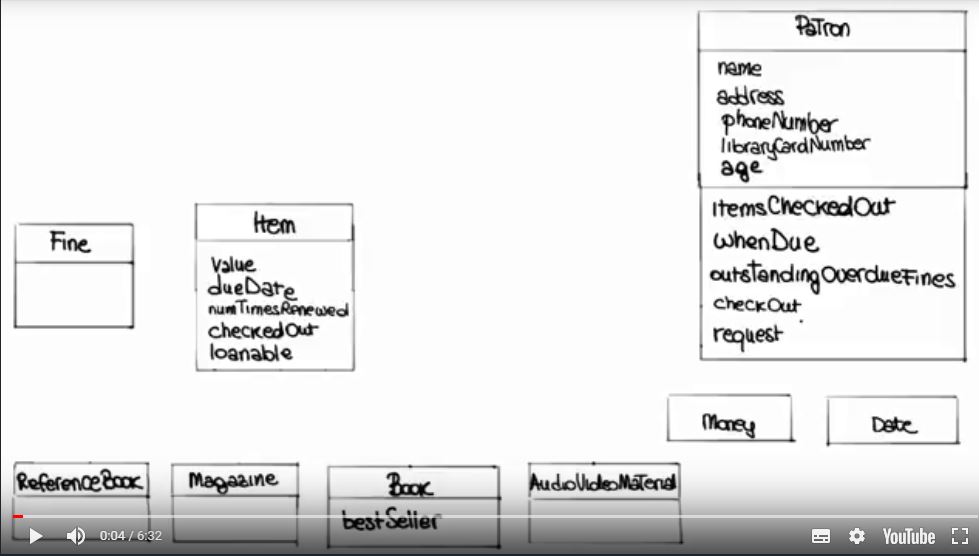 Patron
name
address
phoneNumber
libraryCardNumber
age
itemsCheckedOut
whenDue
outstandingOverdueFines
checkOut
request
Fine
Item
value
dueDate
numTimesRenewed
checkedOut
loanable
Money
Date
ReferenceBook
Magazine
Book
AudioVideoMaterial
bestSeller
0:04 / 6:32
YouTube